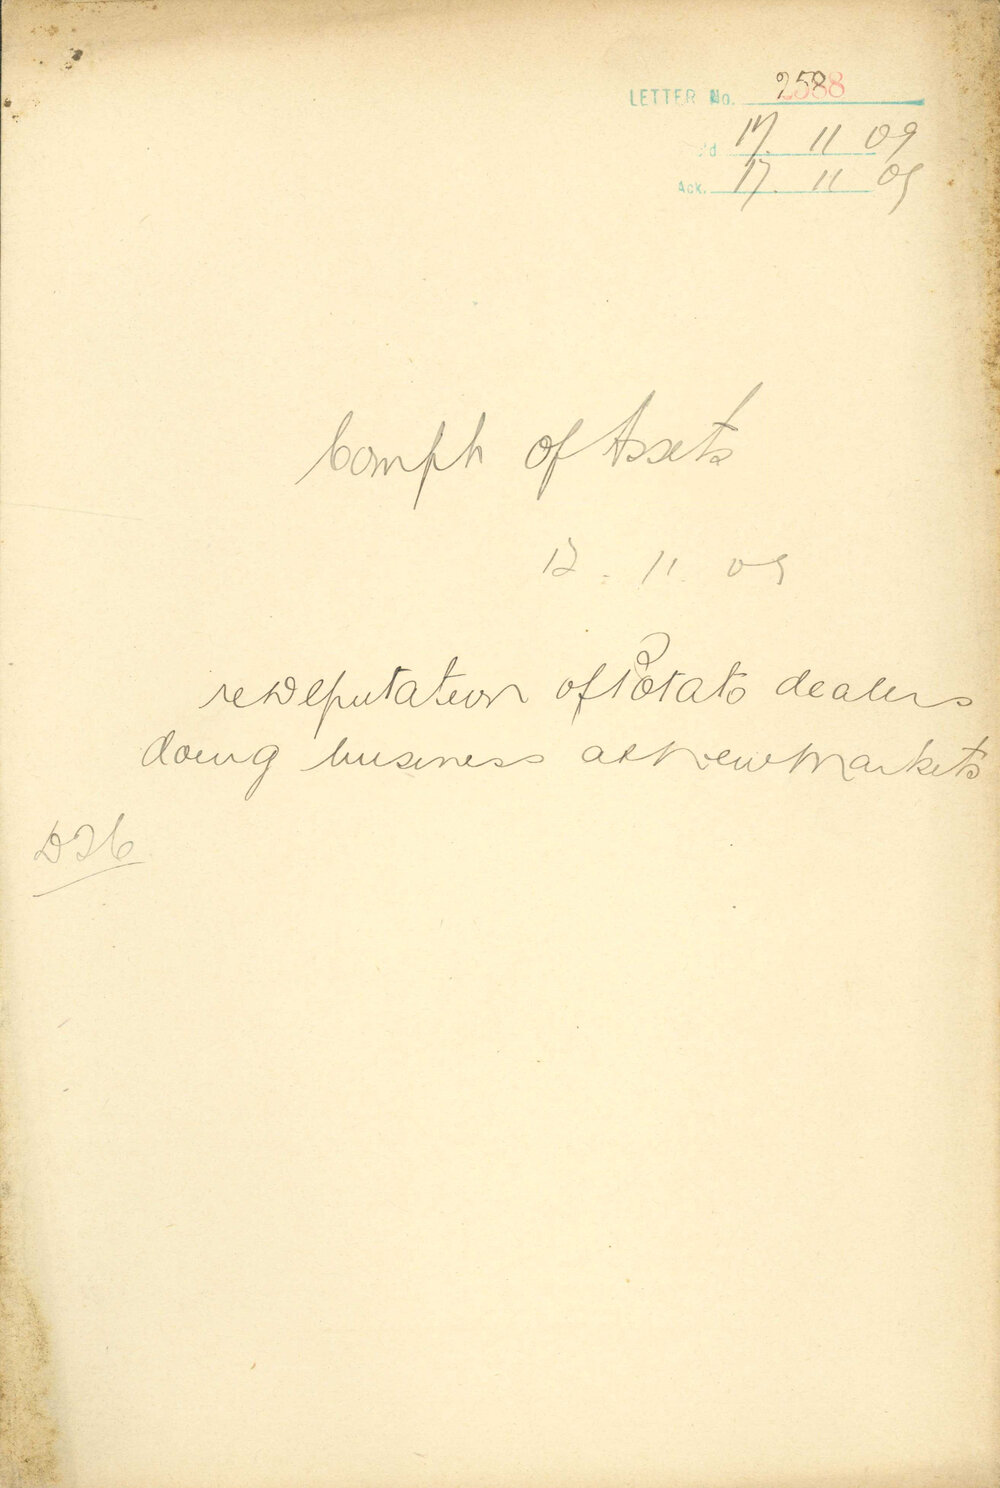 LETTER No. 2588
'd 17. 11 09
Ack. 17. 11 09
Comph of Assets
12. 11. 09
re Deputation of Potato dealers
doing business at New Markets